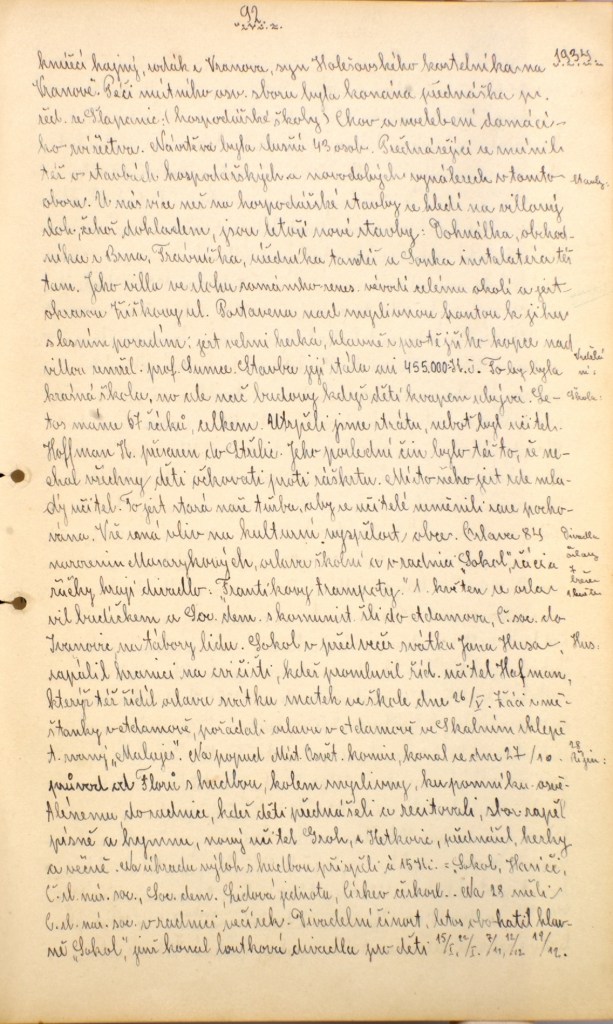 92
1934
knížecí hajný, rodák z Vranova, syn Holešovského kostelníka na
Vranově. Péčí místního osv. sboru byla konána přednáška pr.
řed. ze Šlapanic: (hospodářské školy) Chov a zvelebení domácí-
ho zvířectva. Návštěva byla slušná 43 osob. Přednášející se zmínil
též o stavbách hospodářských a novodobých vynálezech v tomto
Stavby:
oboru. U nás více než na hospodářské stavby se hledí na villový
sloh, čehož dokladem, jsou letoší nové stavby: Dohnálka, obchod-
níka z Brna, Trávníčka, úředníka tamtéž a Sonka instalatéra též
tam. Jeho villa ve slohu románsko-renes. vévodí celému okolí a jest
okrasou Žižkovy ul. Postavena nad myslivnou hranou k jihu
s lesním pozadím: jest velmi hezká, hlavně s protějšího kopce nad
villou uměl. prof. Stavba její stála asi 455.000 Kč. To by byla
Vzdělá
ní:
krásná škola, no ale nač budovy když dětí kvapem ubývá. Le-
Škola:
tos máme 67 žáků, celkem. Utrpěli jsme ztrátu, neboť byl učitel
Hoffman K. přesazen do Střelic. Jeho poslední čin bylo též to, že ne-
chal všechny děti očkovati proti záškrtu. Místo něho jest zde mla-
dý učitel. To jest stará naše tužba, aby se učitelé neměnili sice pocho-
vána. Vše má vliv na kulturní vyspělost obce. Oslava 84
Divadla
oslavy
narozenin Masarykových, oslava školní a v radnici „Sokol“, žáci a
7
březen
žačky hrají divadlo: „Frantíkovy trampoty.“ 1. květen se osla-
1 květen
vil budíčkem a Soc. dem. s komunist. šli do Adamova, Č. soc. do
Ivanovic na tábory lidu. Sokol v předvečer svátku Jana Husa,
Hus:
zapálil hranici na cvičišti, kdež promluvil říd. učitel Hofman,
kterýž též řídil oslavu svátku matek ve škole dne 26/V. Žáci z mě-
šťanky v Adamově, pořádali oslavu v Adamově ve Skalním sklepě
t. zvaný „Malujež“. Na popud Míst. Osvět. komise, konal se dne 27/10.
28
Říjen:
průvod od Florů s hudbou, kolem myslivny, ku pomníku osvě-
tlenému do radnice, kdež děti přednášeli a recitovali, sbor zapěl
písně a hymnu, nový učitel Groh, z Hetkovic, přednášel, hezky
a věcně. Na úhradu výloh s hudbou přispěli à 15 Kč. = Sokol, Hasiči,
Č. sl. nár. soc., Soc. dem. Lidová jednota, Církev čskosl.. Na 28 měli
Č. sl. nár. soc. v radnici večírek. Divadelní činost, letos obohatil hlav-
ně „Sokol“, jenž konal loutková divadla pro děti